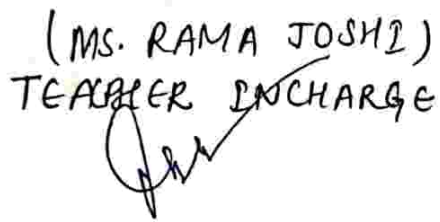 (MS. RAMA JOSHI)
TEACHER INCHARGE